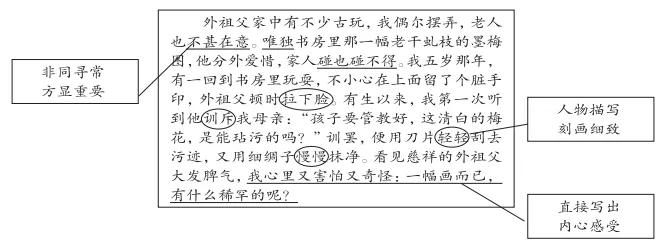 外祖父家中有不少古玩，我偶尔摆弄，老人
也不甚在意。唯独书房里那一幅老干虬枝的墨梅
图，他分外爱惜，家人碰也碰不得。我五岁那年，
有一回到书房里玩耍，不小心在上面留了个脏手
印，外祖父顿时拉下脸。有生以来，我第一次听
到他训斥我母亲：“孩子要管教好，这清白的梅
花，是能玷污的吗？”训罢，便用刀片轻轻刮去
污迹，又用细绸子慢慢抹净。看见慈祥的外祖父
大发脾气，我心里又害怕又奇怪：一幅画而已，
有什么稀罕的呢？
非同寻常
方显重要
人物描写
刻画细致
直接写出
内心感受